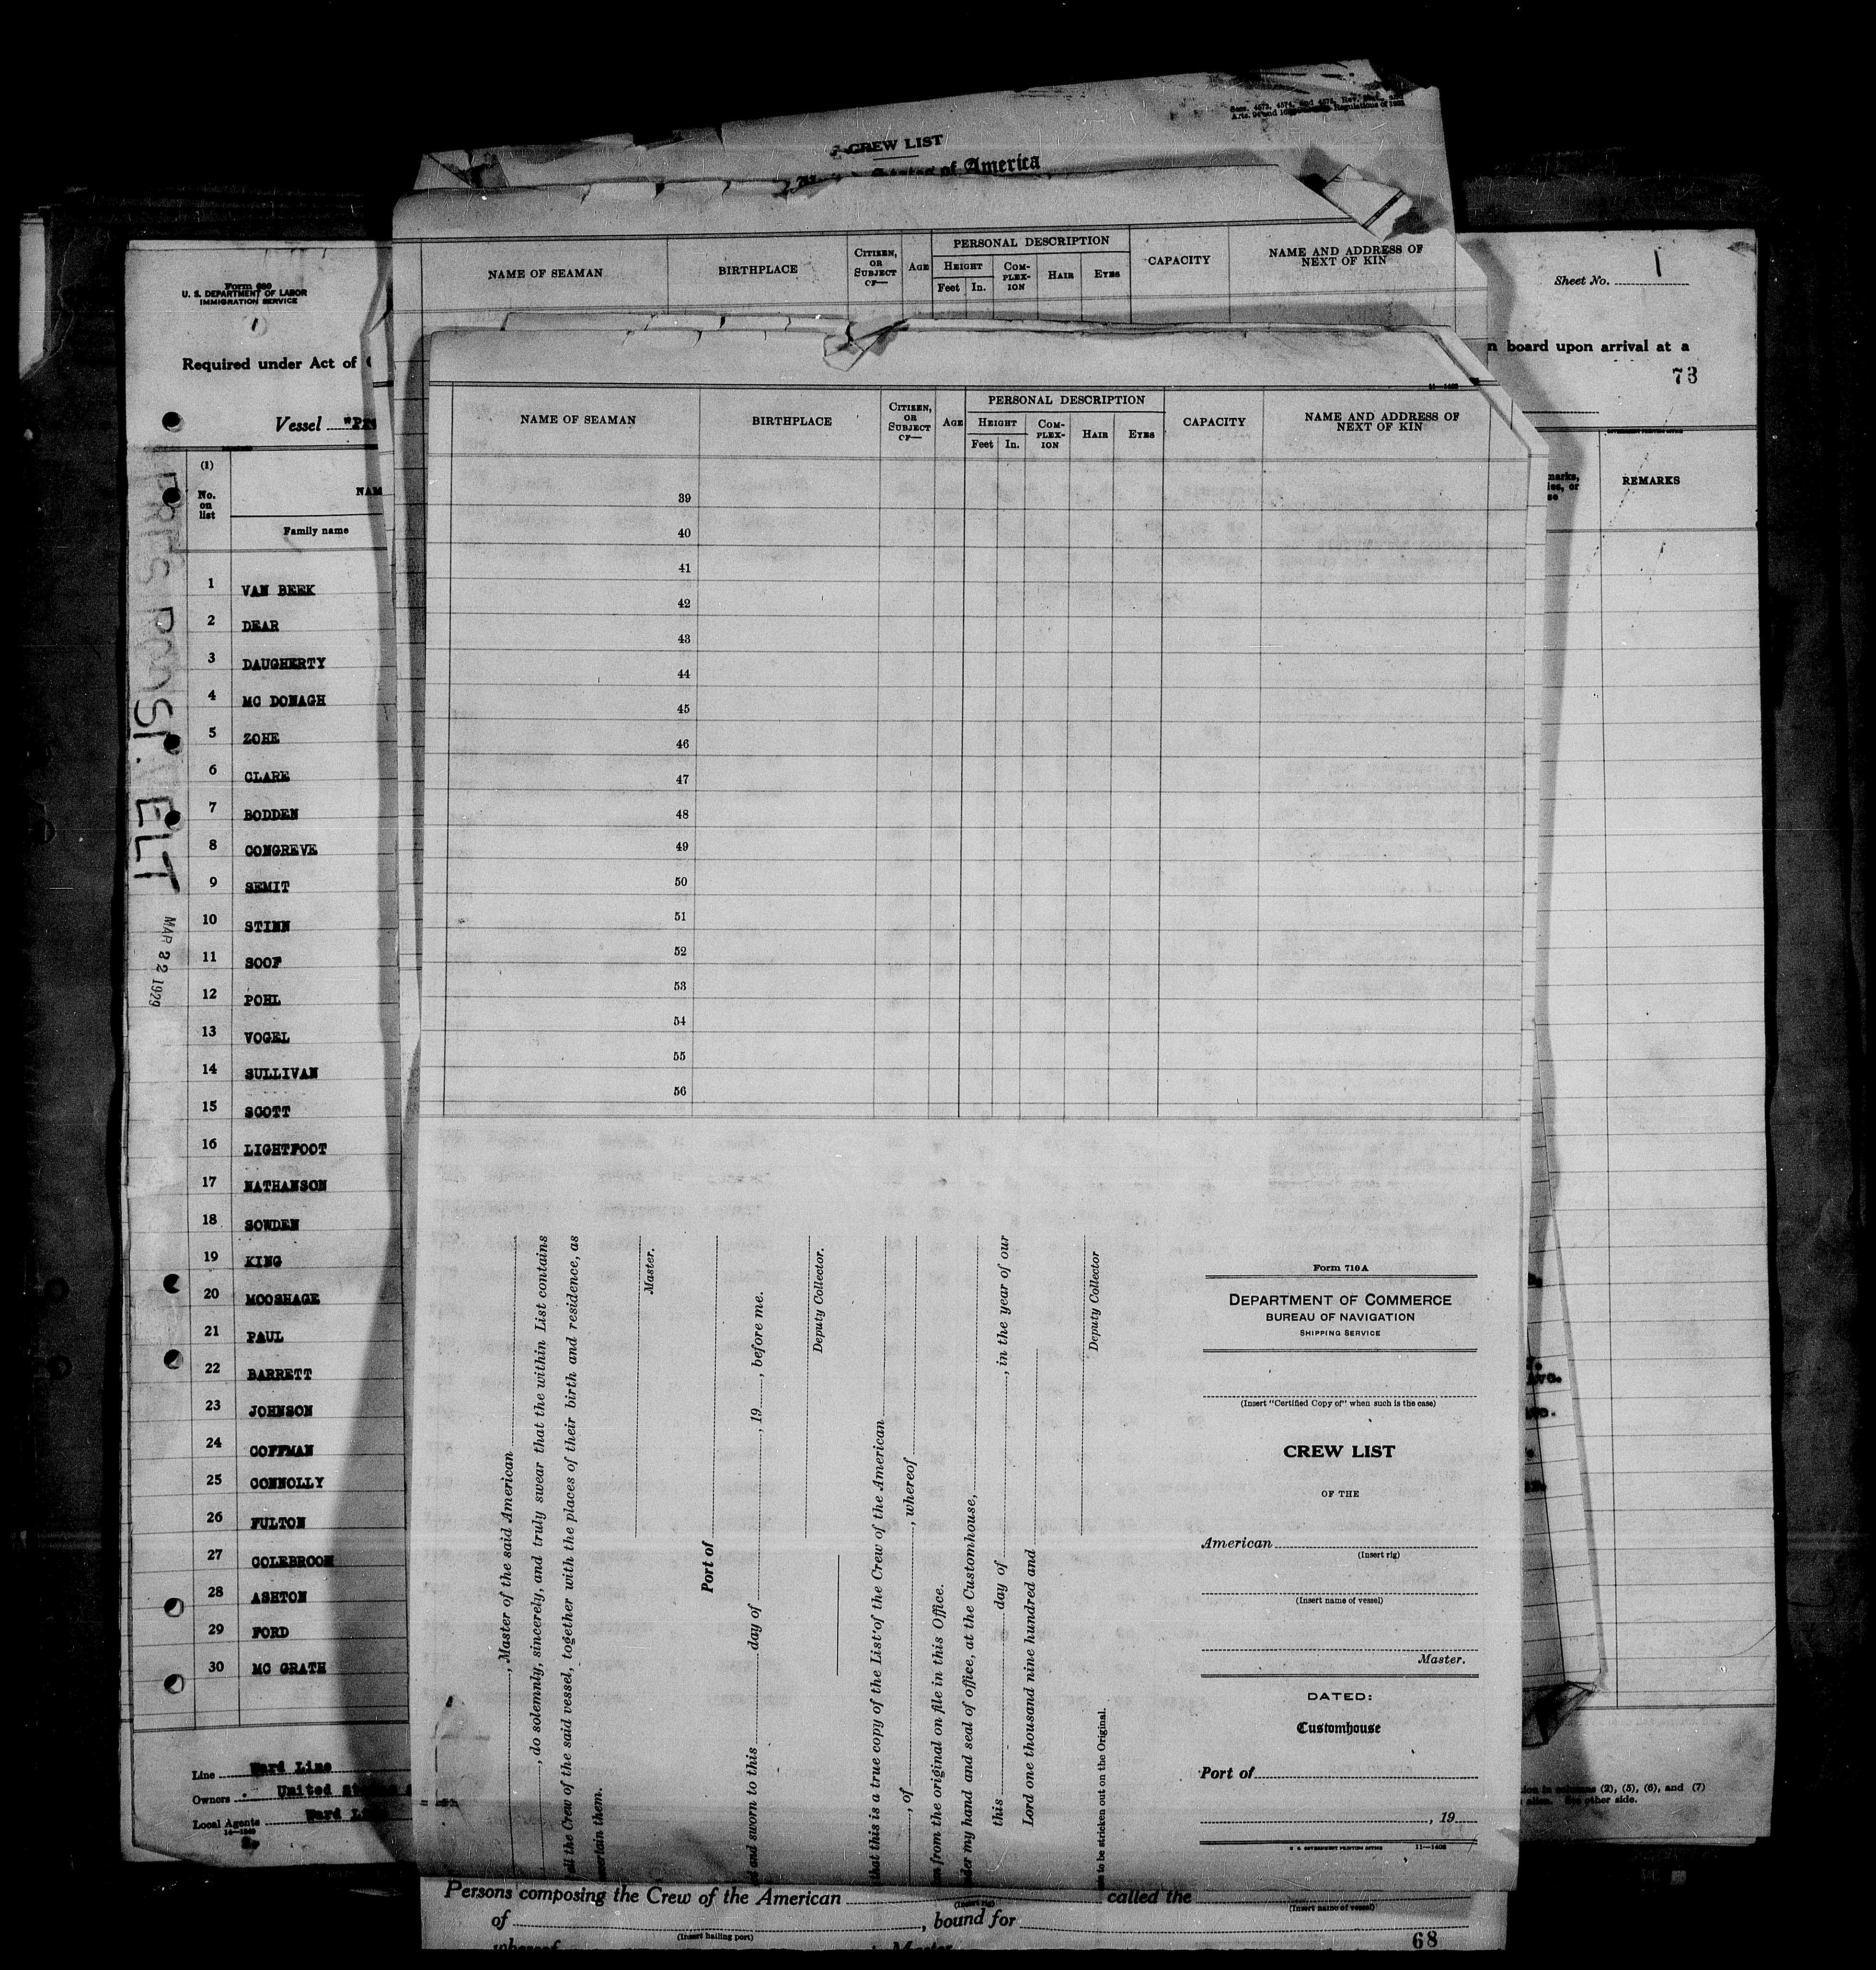 Secs. 4573, 4574, and 4575, Rev. Stat., and
CREW LIST
States of America
NAME OF SEAMAN
BIRTHPLACE
CITIZEN, OR SUBJECT OF—
AGE
PERSONAL DESCRIPTION
HEIGHT
Feet In.
COM-PLEX-ION
HAIR
EYES
CAPACITY
NAME AND ADDRESS OF NEXT OF KIN
Form 680
U. S. DEPARTMENT OF LABOR
IMMIGRATION SERVICE
1
Required under Act of
Vessel
Sheet No. 1
n board upon arrival at a
73
REMARKS
(1)
No. on list
Family name
1 VAN BEEK
2 DEAR
3 DAUGHERTY
4 MC DONAGH
5 ZOHE
6 CLARE
7 BODDEN
8 CONGREVE
9 SEMIT
10 STINN
11 SOOF
12 POHL
13 VOGEL
14 SULLIVAN
15 SCOTT
16 LIGHTFOOT
17 NATHANSON
18 SOWDEN
19 KING
20 MOOSHAGE
21 PAUL
22 BARRETT
23 JOHNSON
24 COFFMAN
25 CONNOLLY
26 FULTON
27 COLEBROOK
28 ASHTON
29 FORD
30 MC GRATH
Line Ward Line
Owners United States
Local Agents Ward
MAR 22 1929
11—1406
NAME OF SEAMAN
BIRTHPLACE
CITIZEN, OR SUBJECT OF—
AGE
PERSONAL DESCRIPTION
HEIGHT
Feet In.
COM-PLEX-ION
HAIR
EYES
CAPACITY
NAME AND ADDRESS OF NEXT OF KIN
39
40
41
42
43
44
45
46
47
48
49
50
51
52
53
54
55
56
, Master of the said American
, do solemnly, sincerely, and truly swear that the within List contains
all the Crew of the said vessel, together with the places of their birth and residence, as
ascertain them.
Master.
Port of
and sworn to this day of , 19 , before me.
Deputy Collector.
that this is a true copy of the List of the Crew of the American
, of , whereof
from the original on file in this Office.
my hand and seal of office, at the Customhouse,
this day of , in the year of our
Lord one thousand nine hundred and
Deputy Collector
to be stricken out on the Original.
Form 710 A
DEPARTMENT OF COMMERCE
BUREAU OF NAVIGATION
SHIPPING SERVICE
(Insert "Certified Copy of" when such is the case)
CREW LIST
OF THE
American
(Insert rig)
(Insert name of vessel)
Master.
DATED:
Customhouse
Port of
, 19
U. S. GOVERNMENT PRINTING OFFICE 11—1406
in columns (2), (5), (6), and (7)
alien. See other side.
Persons composing the Crew of the American called the
(Insert rig) (Insert name of vessel)
of , bound for
(Insert hailing port)
68
whereof is Master